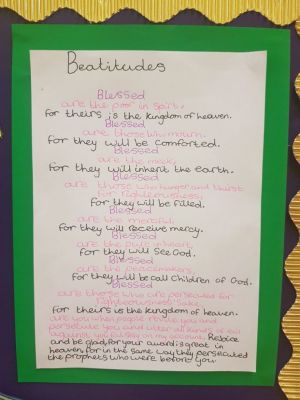 Beatitudes
Blessed
are the poor in spirit,
for theirs is the kingdom of heaven.
Blessed
are those who mourn,
for they will be comforted.
Blessed
are the meek,
for they will inherit the earth.
Blessed
are those who hunger and thirst
for righteousness,
for they will be filled.
Blessed
are the merciful,
for they will receive mercy.
Blessed
are the pure in heart,
for they will see God.
Blessed
are the peacemakers,
for they will be call children of God.
Blessed
are those who are persecuted for
righteousness' sake,
for theirs is the kingdom of heaven.
are you when people revile you and
persecute you and utter all kinds of evil
against you falsely on my account. Rejoice
and be glad, for your award is great in
heaven, for in the same way they persecuted
the prophets who were before you.